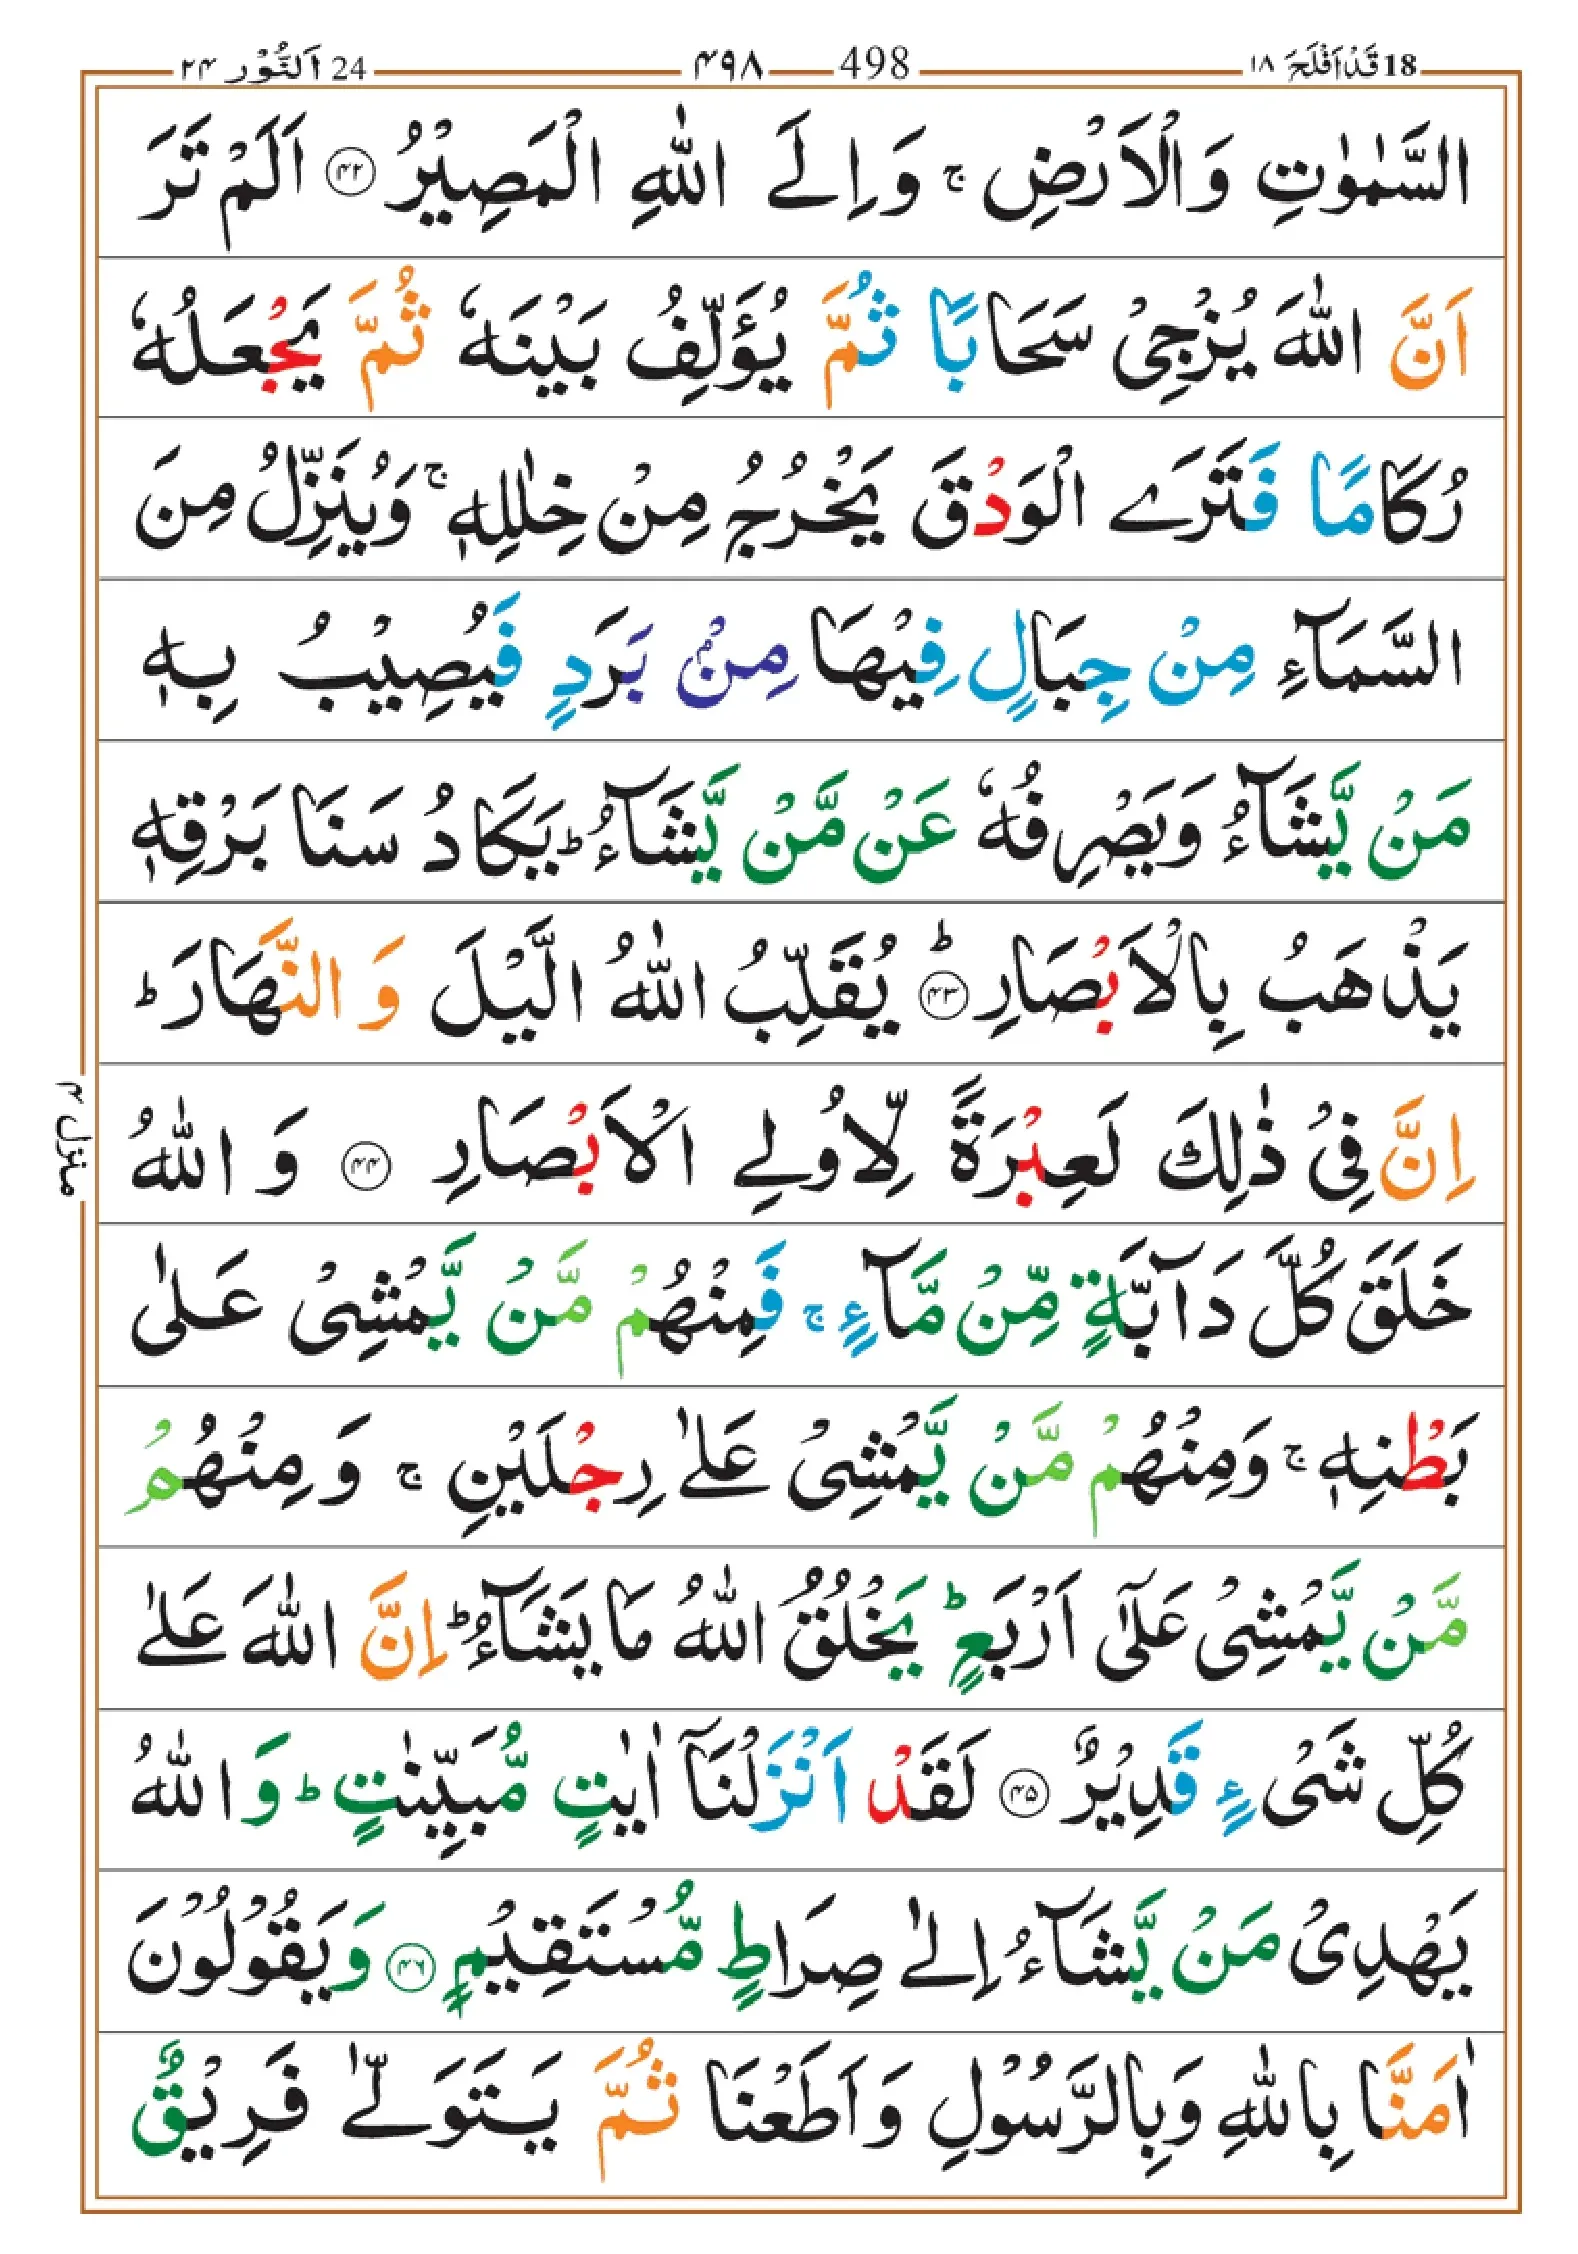 18 قَدْ اَفْلَحَ ۱۸ 498 ۴۹۸ 24 اَلنُّوْر ۲۴
السَّمٰوٰتِ وَالْاَرْضِ ۚ وَاِلَی اللّٰهِ الْمَصِیْرُ ﴿۴۲﴾ اَلَمْ تَرَ
اَنَّ اللّٰهَ یُزْجِیْ سَحَابًا ثُمَّ یُؤَلِّفُ بَیْنَهٗ ثُمَّ یَجْعَلُهٗ
رُكَامًا فَتَرَی الْوَدْقَ یَخْرُجُ مِنْ خِلٰلِهٖ ۚ وَیُنَزِّلُ مِنَ
السَّمَآءِ مِنْ جِبَالٍ فِیْهَا مِنْۢ بَرَدٍ فَیُصِیْبُ بِهٖ
مَنْ یَّشَآءُ وَیَصْرِفُهٗ عَنْ مَّنْ یَّشَآءُ ؕ یَكَادُ سَنَا بَرْقِهٖ
یَذْهَبُ بِالْاَبْصَارِ ﴿۴۳﴾ؕ یُقَلِّبُ اللّٰهُ الَّیْلَ وَ النَّهَارَ ؕ
اِنَّ فِیْ ذٰلِكَ لَعِبْرَةً لِّاُولِی الْاَبْصَارِ ﴿۴۴﴾ وَ اللّٰهُ
خَلَقَ كُلَّ دَآبَّةٍ مِّنْ مَّآءٍ ۚ فَمِنْهُمْ مَّنْ یَّمْشِیْ عَلٰی
بَطْنِهٖ ۚ وَمِنْهُمْ مَّنْ یَّمْشِیْ عَلٰی رِجْلَیْنِ ۚ وَ مِنْهُمْ
مَّنْ یَّمْشِیْ عَلٰۤی اَرْبَعٍ ؕ یَخْلُقُ اللّٰهُ مَا یَشَآءُ ؕ اِنَّ اللّٰهَ عَلٰی
كُلِّ شَیْءٍ قَدِیْرٌ ﴿۴۵﴾ لَقَدْ اَنْزَلْنَاۤ اٰیٰتٍ مُّبَیِّنٰتٍ ؕ وَ اللّٰهُ
یَهْدِیْ مَنْ یَّشَآءُ اِلٰی صِرَاطٍ مُّسْتَقِیْمٍ ﴿۴۶﴾ وَیَقُوْلُوْنَ
اٰمَنَّا بِاللّٰهِ وَبِالرَّسُوْلِ وَاَطَعْنَا ثُمَّ یَتَوَلّٰی فَرِیْقٌ
منزل ۴